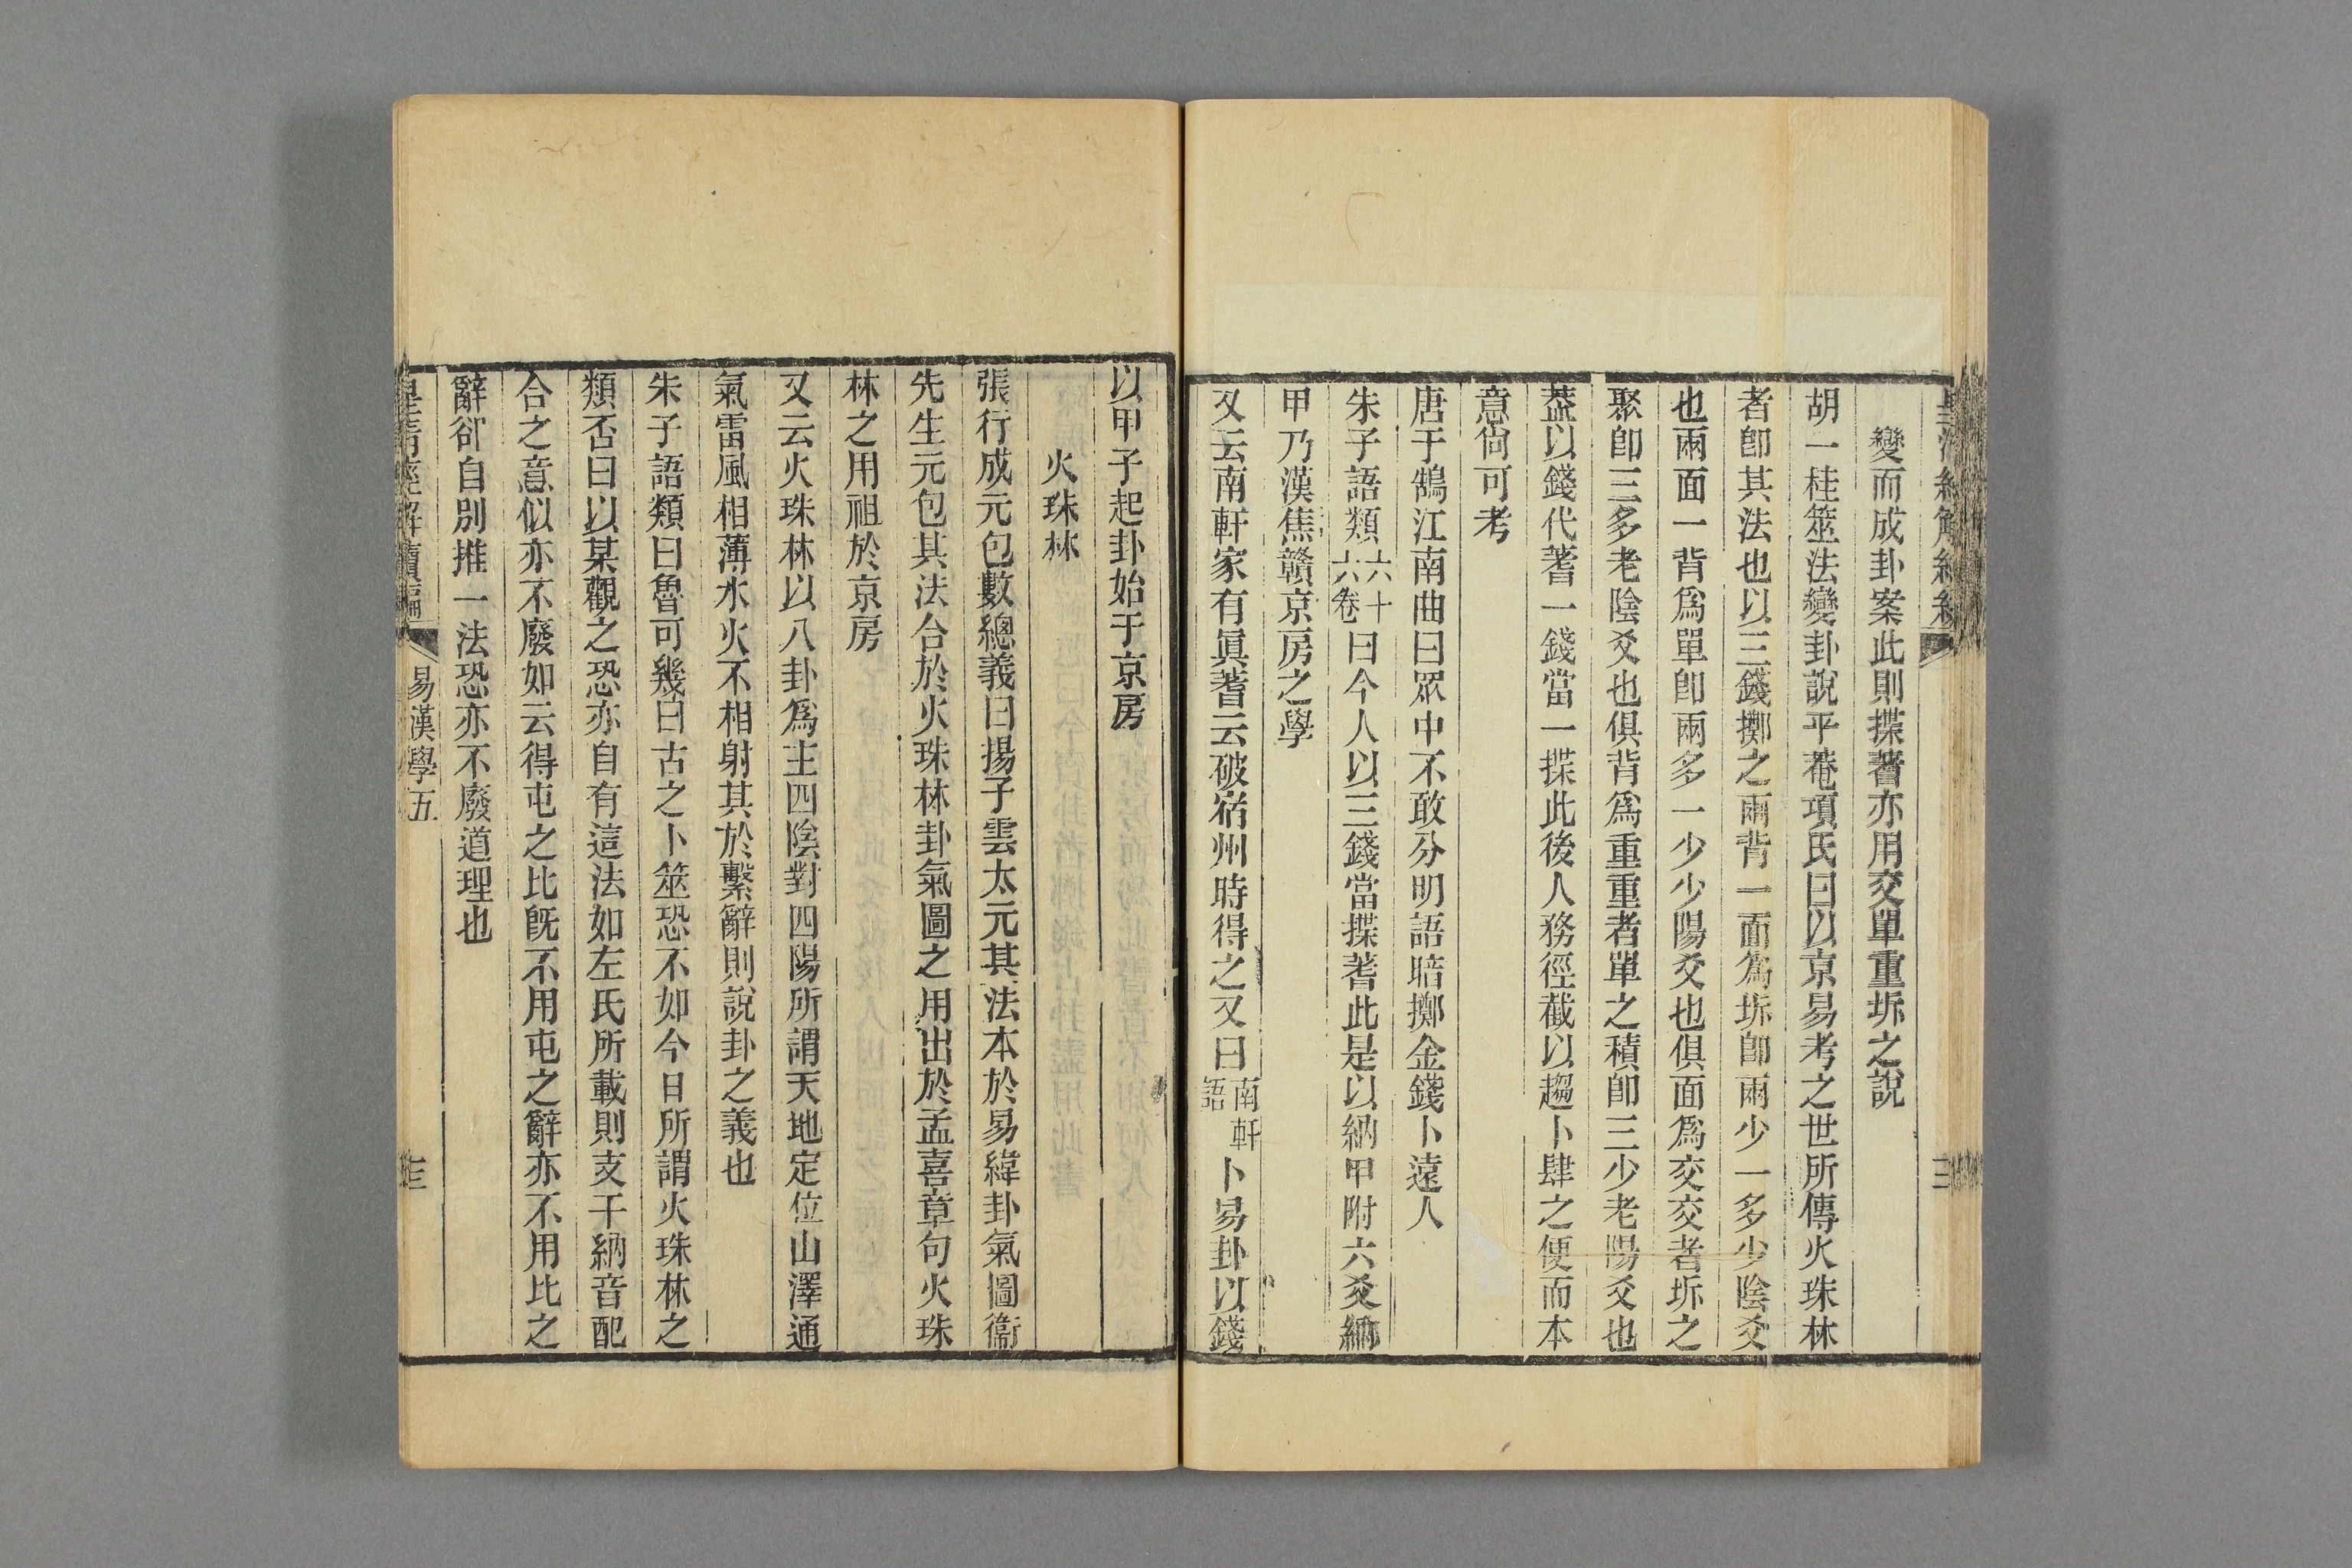 變而成卦案此則揲蓍亦用交單重坼之說
胡一桂筮法變卦說平菴項氏曰以京易考之世所傳火珠林
者卽其法也以三錢擲之兩背一面爲坼卽兩少一多少陰爻
也兩面一背爲單卽兩多一少少陽爻也俱面爲交交者坼之
聚卽三多老陰爻也俱背爲重重者單之積卽三少老陽爻也
葢以錢代蓍一錢當一揲此後人務徑截以趨卜肆之便而本
意尙可考
唐于鵠江南曲曰眾中不敢分明語暗擲金錢卜遠人
朱子語類六十六卷曰今人以三錢當揲蓍此是以納甲附六爻納
甲乃漢焦贛京房之學
又云南軒家有眞蓍云破宿州時得之又曰南軒語卜易卦以錢
以甲子起卦始于京房
火珠林
張行成元包數總義曰揚子雲太元其法本於易緯卦氣圖衞
先生元包其法合於火珠林卦氣圖之用出於孟喜章句火珠
林之用祖於京房
又云火珠林以八卦爲主四陰對四陽所謂天地定位山澤通
氣雷風相薄水火不相射其於繫辭則說卦之義也
朱子語類曰魯可幾曰古之卜筮恐不如今日所謂火珠林之
類否曰以某觀之恐亦自有這法如左氏所載則支干納音配
合之意似亦不廢如云得屯之比旣不用屯之辭亦不用比之
辭卻自別推一法恐亦不廢道理也
皇清經解續編 易漢學五